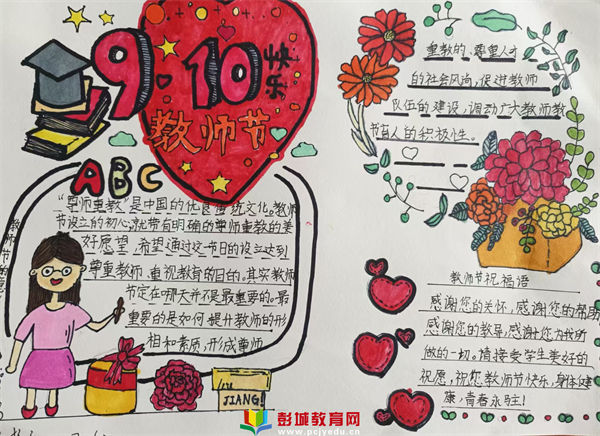 9.10
快乐
教师节
ABC
“尊师重教”是中国的优良传统文化。教师
节设立的初心,就带有明确的尊师重教的美
好愿望,希望通过这一节日的设立达到
尊重教师,重视教育的目的,其实教师
节定在哪天并不是最重要的。最
重要的是如何提升教师的形
相和素质,形成尊师
重教的、尊重人才
的社会风尚,促进教师
队伍的建设,调动广大教师教
书育人的积极性。
教师节祝福语
感谢您的关怀,感谢您的帮助
感谢您的教导,感谢您为我所
做的一切。请接受学生美好的
祝愿,祝您教师节快乐,身体健
康,青春永驻!
JIANG!
彭城教育网
www.pcjyedu.cn